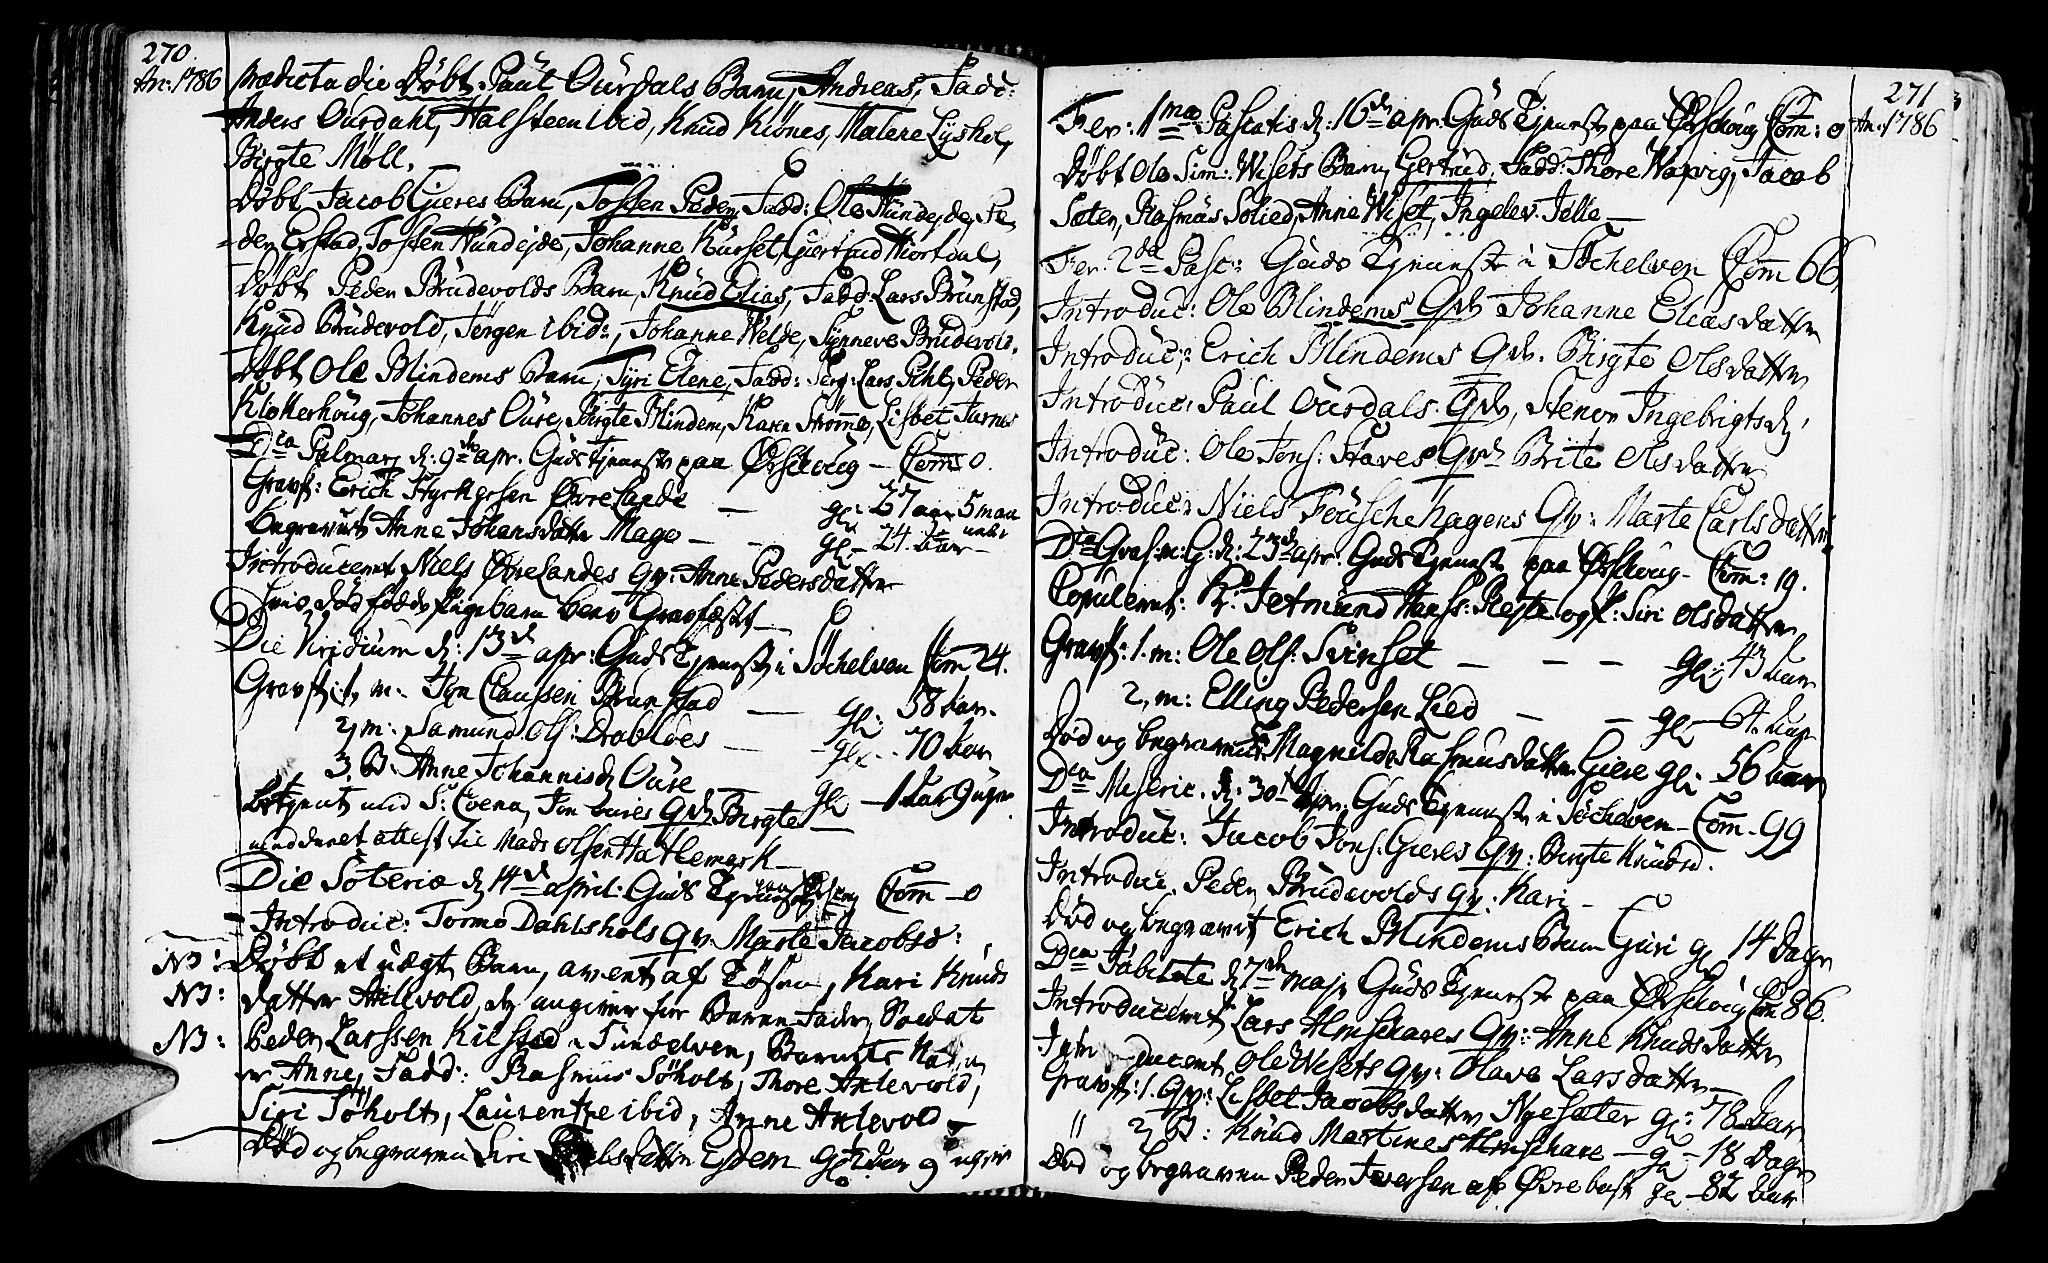 270.
An: 1786
prædicta die Døbt Paul Ourdals Barn, Andreas, Fadd:
Anders Ourdahl, Halsteen ibid, Knud Kiønes, Malene Lyshol,
Birgte Møll.
Døbt Jacob Gieres Barn, Tosten Peder, Fadd: Ole Hundejde, Pe-
der Erstad, Tosten Hundejde, Johanne Kurset, Giertrud Hiortdal,
Døbt Peder Brudevolds Barn, Knud Elias, Fadd: Lars Brunstad,
Knud Brudevold, Jørgen ibid:, Johanne Welde, Synneve Brudevold.
Døbt Ole Blindems Barn, Syri Elene, Fadd: Serg: Lars Pihl, Peder
Klokkerhoug, Johannes Oure, Birgte Blindem, Karen Strømme, Lisbet
Dca Palmar: d: 9de apr: Guds Tjeneste paa Ørschoug - Com 0.
Gravf: Erich Øvrelande - gl: 27 aar 5 maa
begravet Anne Johansdatter Mage - - gl - 24 aar -
Introduceret Niels Øvrelandes Qv: Anne Pedersdatter
død fødde Pigebarn blev Gravfæst -
Die Viridium d: 13de apr: Guds Tjeneste i Søchelven Com 24.
Gravf: 1. m. Claussen Brunstad - gl: 58 aar.
2, m: Samund Ols: Drabløes - gl: - 70 aar
3. B: Anne Johannisd: Oure - gl - 1 aar 9 uger
betjent med S: Coena, Jon Oures Qv: Birgte -
meddeelet attest til Mads Olsen Hatlemark -
Die Soteriæ d 14de april: Guds Tjeneste paa Com - 0
- Introduc: Tormo Dahlshols Qv: Marte Jacobsd:
NB: Døbt et uægte Barn, avlet af Tøsen, Kari Knuds
NB: datter Axlevold, der angiver for Barne Fader, Soldat
NB: Peder Larssen Kilstad i Sundelven, Barnets Navn
er Anne, Fadd: Rasmus Søholt, Thore Axlevold,
Siri Søholt, Laurentze ibid, Anne Axlevold -
Død og begraven Siri Eidem gl 2 aar 9 uger
271
An: 1786
Fer: 1mæ Pascatis d: 16de apr: Guds Tjeneste paa Ørschoug Com: 0
Døbt Ole Sim: Wisets Barn, Gertrud, Fadd: Thore Jacob
Sæter, Rasmus Solied, Anne Wiset, Ingelev Jelle -
Fer. 2dæ Pasc: Guds Tjeneste i Søchelven Com 66
Introduc: Ole Blindems Qv: Johanne Eliasdatter
Introduc: Erich Blindems Qv. Birgte Olsdatter
Introduc: Paul Ourdals Qv, Stenov Ingebrigtsd,
Introduc: Ole Jons: Staves Qv: Brite Olsdatter
Introduc: Niels Fousche hagens Qv: Marte Carlsdatter
Dca Qvas: m: G: d: 23de apr: Guds Tjeneste paa Ørschoug - Com: 19.
Copuleret: K: Jetmund Hans: Rejte og P: Siri Olsdatter
Gravf: 1. m: Ole Ols: Svinset - - - gl: 43 aar
2, m: Elling Pedersen Lied - - gl - 64 aar
Død og begraven Magnilde Rasmusdatter Giere gl: 56 aar
Dca Miseric. d: 30te Apr: Guds Tjeneste i Søchelven - Com - 99
Introduc: Jacob Jons: Gieres Qv: Birgte Knudsd.
Introduc. Peder Brudevolds qv: Kari -
Død og begravet Erich Blindems Barn Guri gl 14 Dage
Dca Jubilate d 7de maj Guds Tjeneste paa Ørschoug Com 86.
Introduceret Lars Almschares Qv: Anne Knudsdatter
Introduceret Ole Wisets Qv: Olava Larsdatter -
Gravf: 1. Qv: Lisbet Jacobsdatter Nysæter gl: 78 aar
" 2, B: Knud Martines Almschare - gl - 18 Dage
Død og begraven Peder Iversen af Øvrebust gl - 82 aar